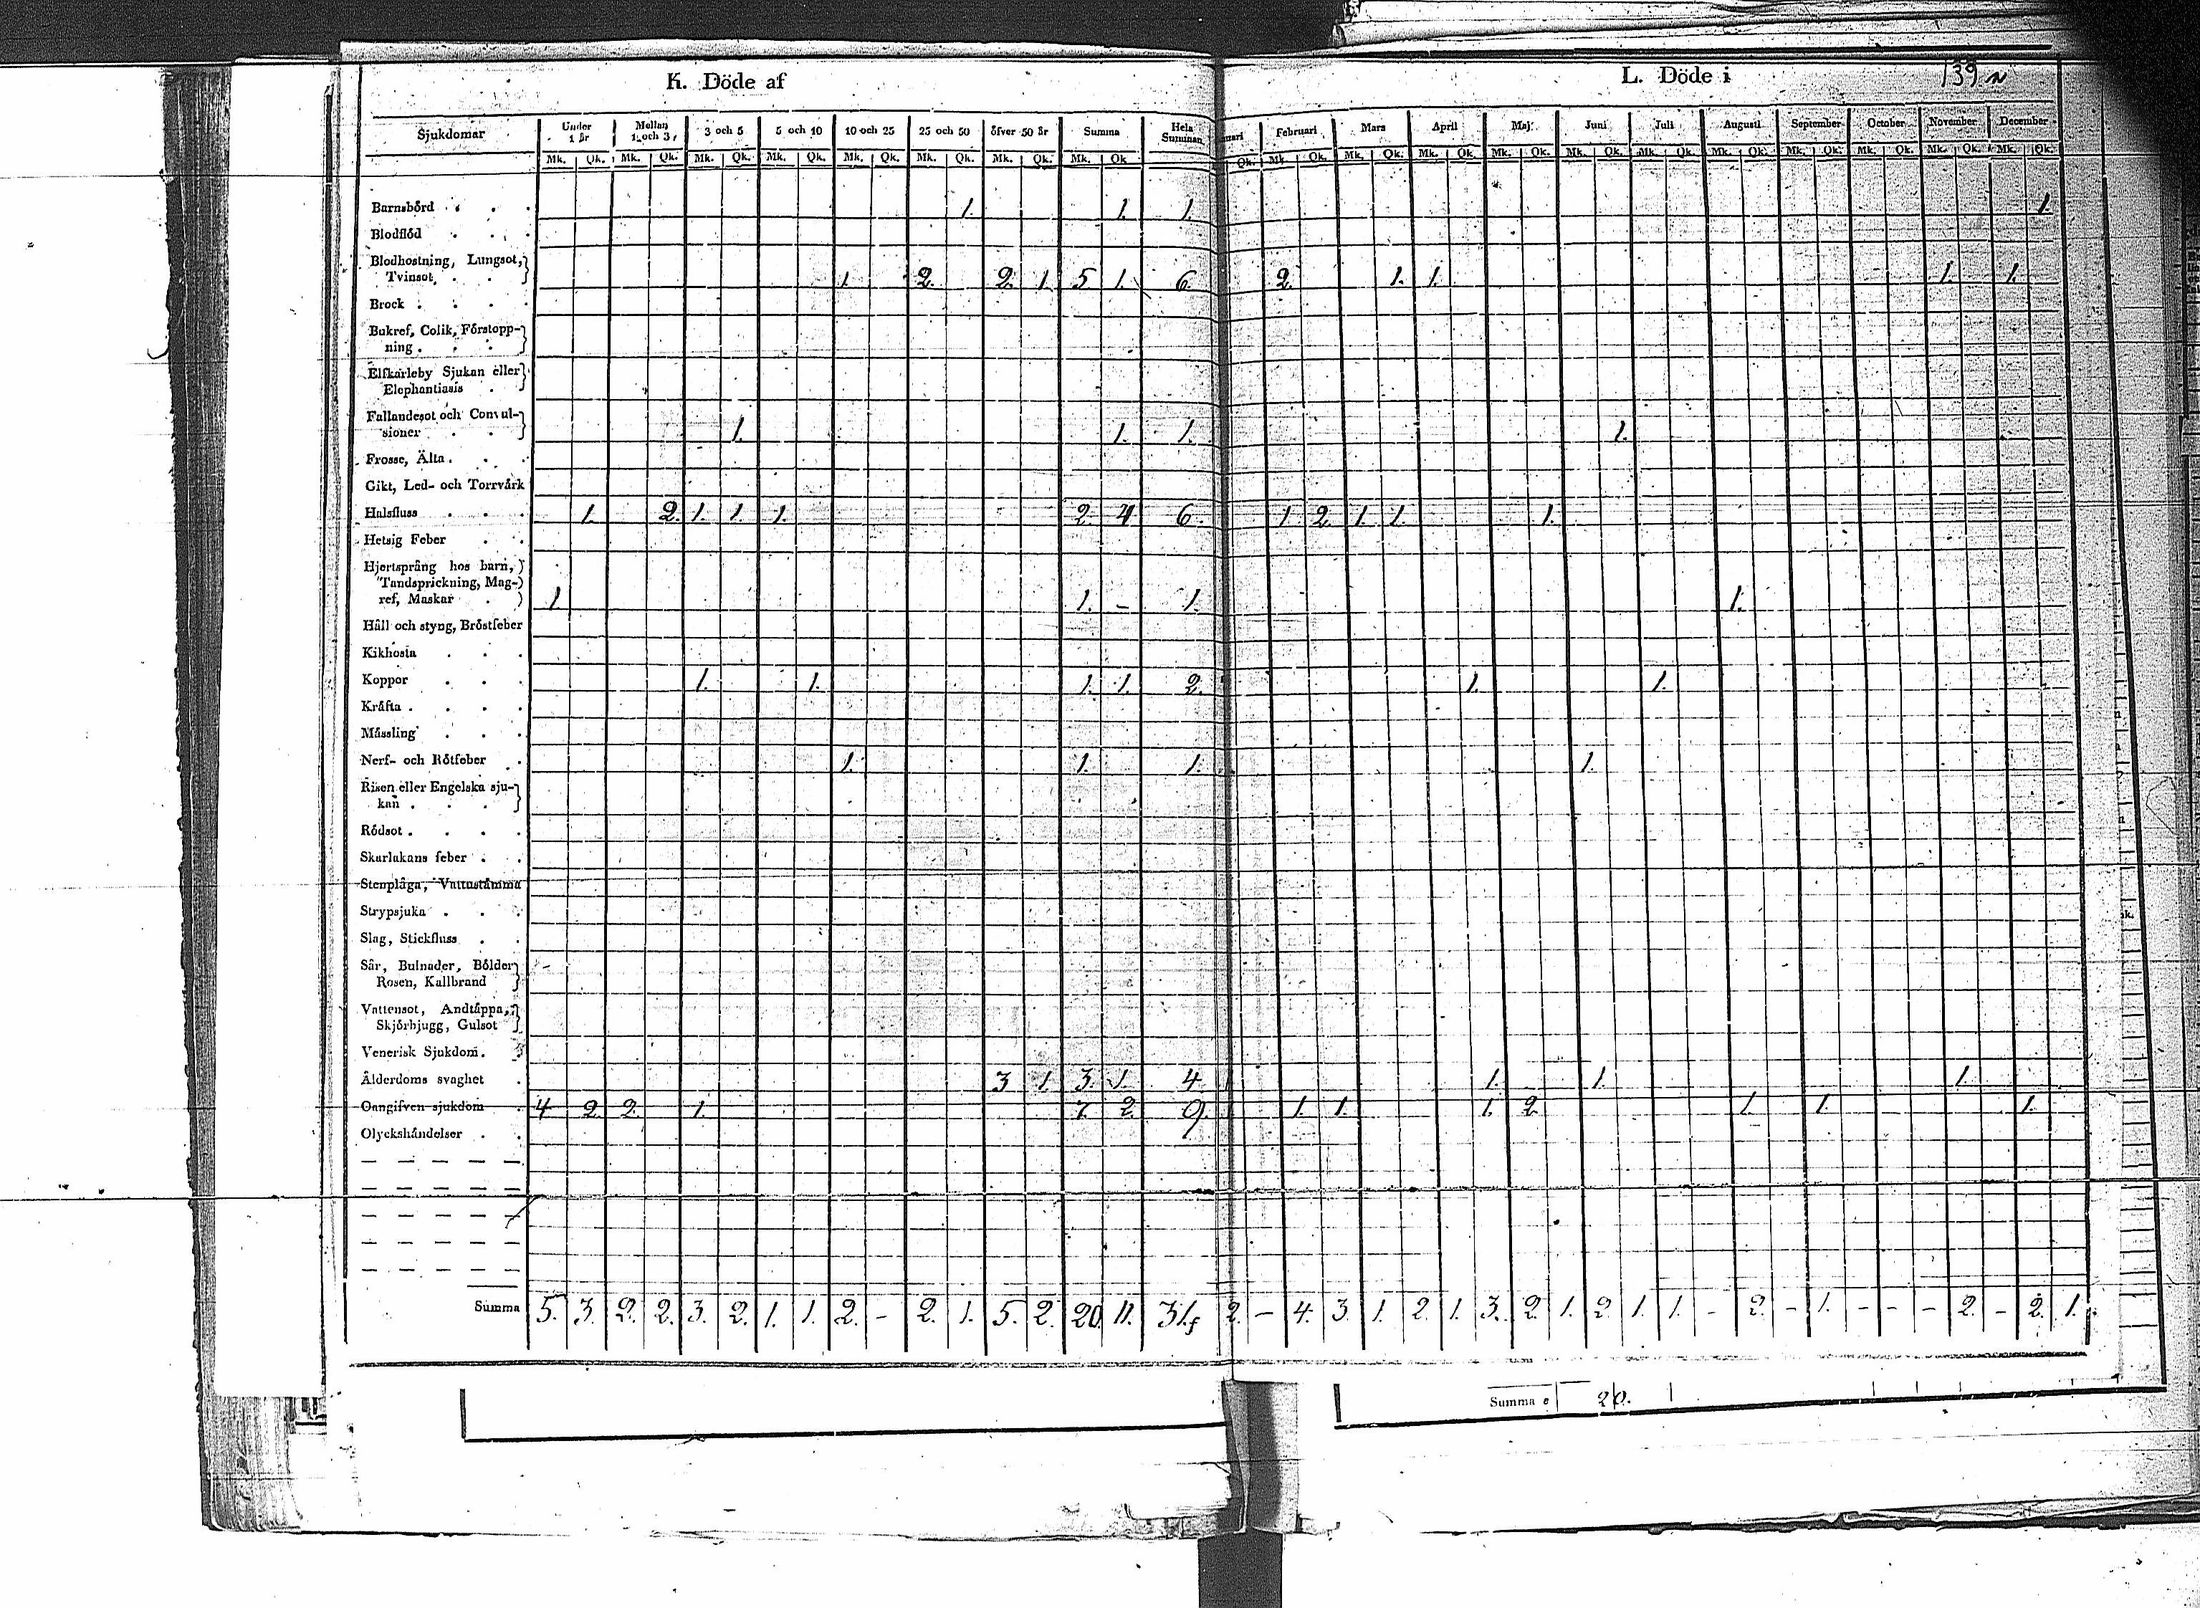 K. Döde af
L. Döde i
139
Sjukdomar Under 1 år Mellan 1 och 3 3 och 5 5 och 10 10 och 25 25 och 50 öfver 50 år Summa Hela Summan Februari Mars April Maj Juni Juli Augusti September October November December
Mk. Qk. Mk. Qk. Mk. Qk. Mk. Qk. Mk. Qk. Mk. Qk. Mk. Qk. Mk. Qk. Qk. Mk. Qk. Mk. Qk. Mk. Qk. Mk. Qk. Mk. Qk. Mk. Qk. Mk. Qk. Mk. Qk. Mk. Qk. Mk. Qk. Mk. Qk.
Barnsbörd . . . 1. 1. 1. 1.
Blodflöd . . .
Blodhostning, Lungsot,
Tvinsot . . 1. 2. 2. 1. 5 1. 6. 2. 1. 1. 1. 1.
Brock . . . .
Bukref, Colik, Förstopp-
ning . . .
Elfkarleby Sjukan eller
Elephantiasis .
Fallandesot och Convul-
sioner . . 1. 1. 1. 1.
Frosse, Älta . . .
Gikt, Led- och Torrvärk
Halsfluss . . . 1. 2. 1. 1. 1. 2. 4 6. 1. 2. 1. 1. 1.
Hetsig Feber . .
Hjertsprång hos barn,
Tandsprickning, Mag-
ref, Maskar . 1 1. – 1. 1.
Håll och styng, Bröstfeber
Kikhosta . . .
Koppor . . . 1. 1. 1. 1. 2. 1. 1.
Kräfta . . . .
Mässling . . .
Nerf- och Rötfeber . . 1. 1. 1. 1.
Risen eller Engelska sju-
kan . . .
Rödsot . . . .
Skarlakans feber . .
Stenplåga, Vattustämma
Strypsjuka . . .
Slag, Stickfluss . .
Sår, Bulnader, Bölder
Rosen, Kallbrand
Vattensot, Andtäppa,
Skjörbjugg, Gulsot
Venerisk Sjukdom .
Ålderdoms svaghet . 3 1. 3. 1. 4. 1. 1. 1.
Oangifven sjukdom . 4 2. 2. 1. 7. 2. 9. 1. 1. 1. 2. 1. 1. 1.
Olyckshändelser . .
Summa 5. 3. 2. 2. 3. 2. 1. 1. 2. – 2. 1. 5. 2. 20. 11. 31. 2. – 4. 3. 1. 2. 1. 3. 2. 1. 2. 1. 1. – 2. – 1. – – – 2. – 2. 1.
Summa 20.